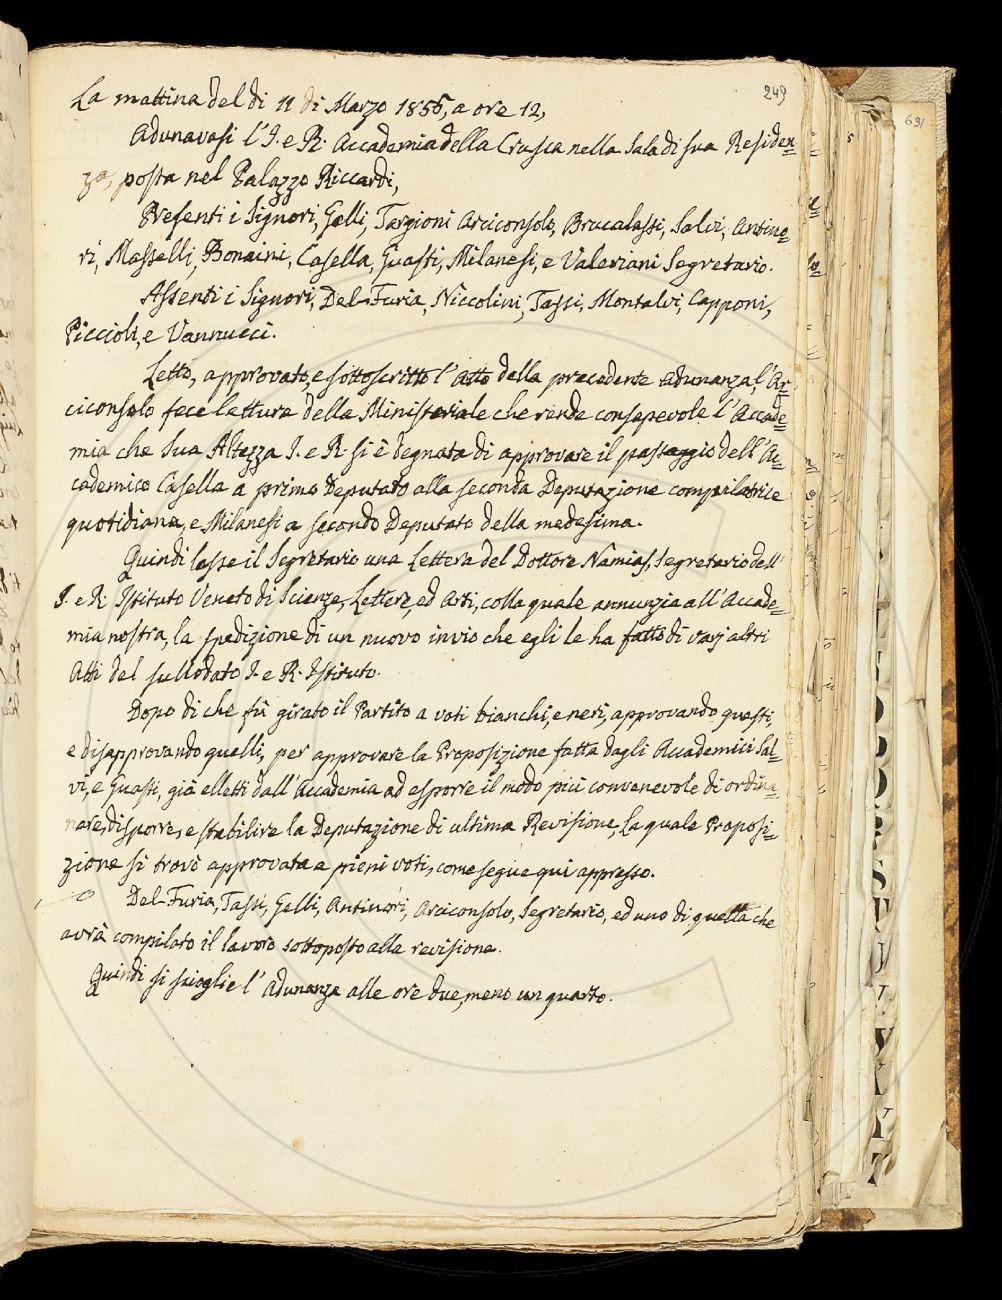 249
La mattina del dì 11 di Marzo 1856, a ore 12,
Adunavasi l'I. e R. Accademia della Crusca nella Sala di sua Residen=
za, posta nel Palazzo Riccardi,
Presenti i Signori, Gelli, Targioni Arciconsolo, Brucalassi, Salvi, Antino=
ri, Masselli, Bonaini, Casella, Guasti, Milanesi, e Valeriani Segretario.
Assenti i Signori, Del-Furia, Niccolini, Tassi, Montalvi, Capponi,
Piccioli, e Vannucci.
Letto, approvato, e sottoscritto l'Atto della precedente adunanza, l'Ar=
ciconsolo fece lettura della Ministeriale che rende consapevole l'Accade=
mia che Sua Altezza I. e R. si è degnata di approvare il passaggio dell'Ac=
cademico Casella a primo Deputato alla seconda Deputazione compilatrice
quotidiana, e Milanesi a secondo Deputato della medesima.
Quindi lesse il Segretario una Lettera del Dottore Namias, Segretario dell'
I. e R. Istituto Veneto di Scienze, Lettere, ed Arti, colla quale annunzia all'Accade=
mia nostra, la spedizione di un nuovo invio che egli le ha fatto di varj altri
Atti del sullodato I. e R. Istituto.
Dopo di che fù girato il Partito a voti bianchi, e neri, approvando questi,
e disapprovando quelli, per approvare la Proposizione fatta dagli Accademici Sal=
vi, e Guasti, già elletti dall'Accademia ad esporre il modo più convenevole di ordina=
nare, disporre, e stabilire la Deputazione di ultima Revisione, la quale Proposi=
zione si trovò approvata a pieni voti, come segue qui appresso.
Del-Furia, Tassi, Gelli, Antinori, Arciconsolo, Segretario, ed uno di quella che
avrà compilato il lavoro sottoposto alla revisione.
Quindi si scioglie l'Adunanza alle ore due, meno un quarto.